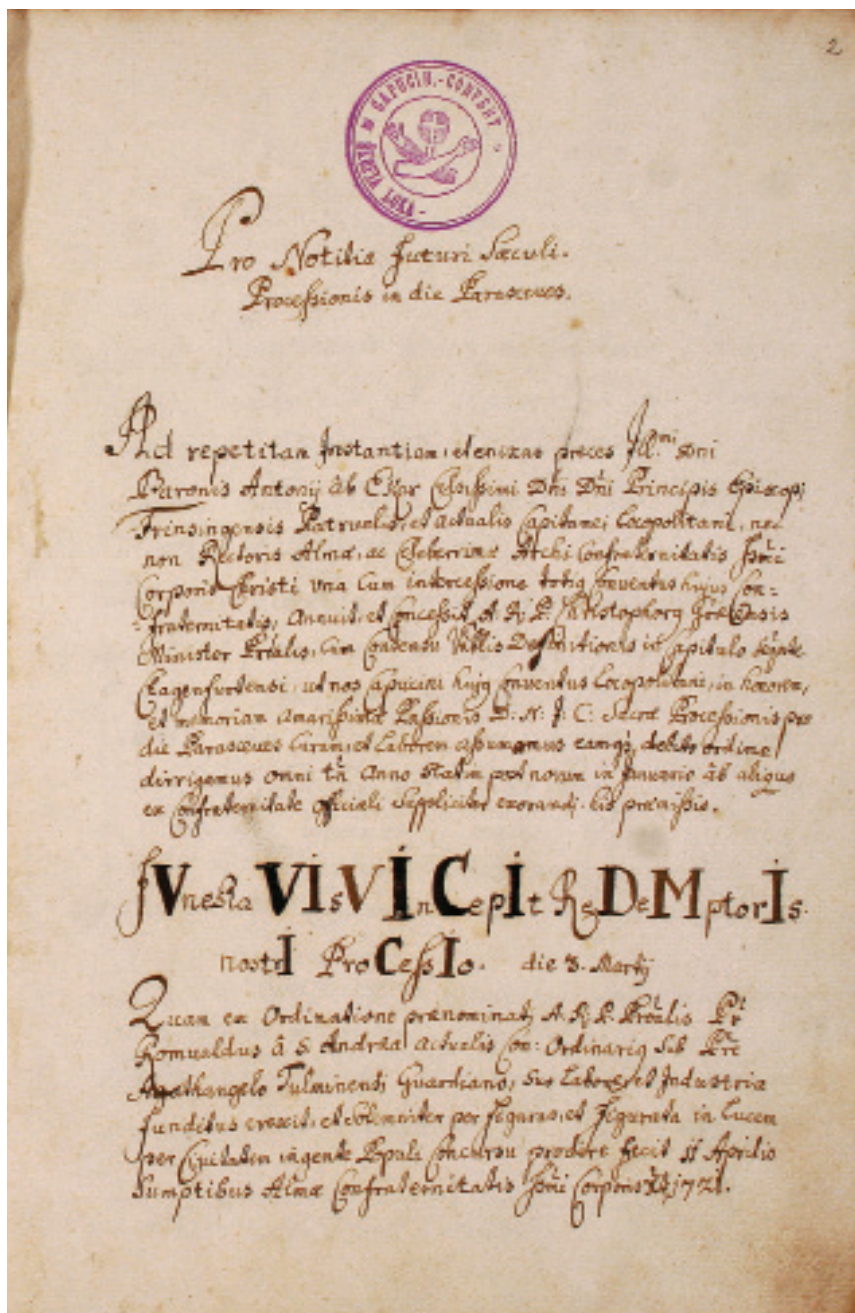 2
CAPUCIN.-CONVENT
LOKA
Pro Notitia futuri Sæculi.
Processionis in die Parasceues.
Ad repetitam Instantiam, et enixas preces Ill.mi Dni
Baronis Antonij ab Celsissimi Dni Dni Principis Episcopi
Frinsingensis Patruelis, et actualis Capitanei Locopolitani, nec
non Rectoris Almæ, ac Celeberrimæ Archi Confraternitatis
Corporis Christi una cum intercessione Conventus hujus Con=
=fraternitatis, Annuit, et concessit A. R. P. Christophorg
Minister cum Consensu Definitionis in Capitulo
Clagenfurtensi, ut nos Capucini hujg Conventus Locopolitani, in honorem,
et memoriam amarissimæ Passionis D: N: J: C: Sacræ Processionis pro
die Parasceues Curam, et Laborem assumamus eamq; debito ordine
dirrigemus omni tn Anno statim post novum in Januario ab aliquo
ex Confraternitate officiali suppliciter exorandj. his præmissis.
fVnesta VIsVInCepIt ReDeMptorIs.
nostrI ProCessIo. die 3. Martij
Quam ex Ordinatione prænominatj A. R. P. Prålis Pr
Romualdus â S. Andrea actualis Con: Ordinarig sub Pre
Agathangelo Tulminensi Guardiano, suo Labore, et Industria
funditus erexit, et solemniter per figuras, et figurata in Lucem
per Civitatem ingente Populi Concursu prodere fecit 11 Aprilis
Sumptibus Almæ Confraternitatis Corporis 1721.